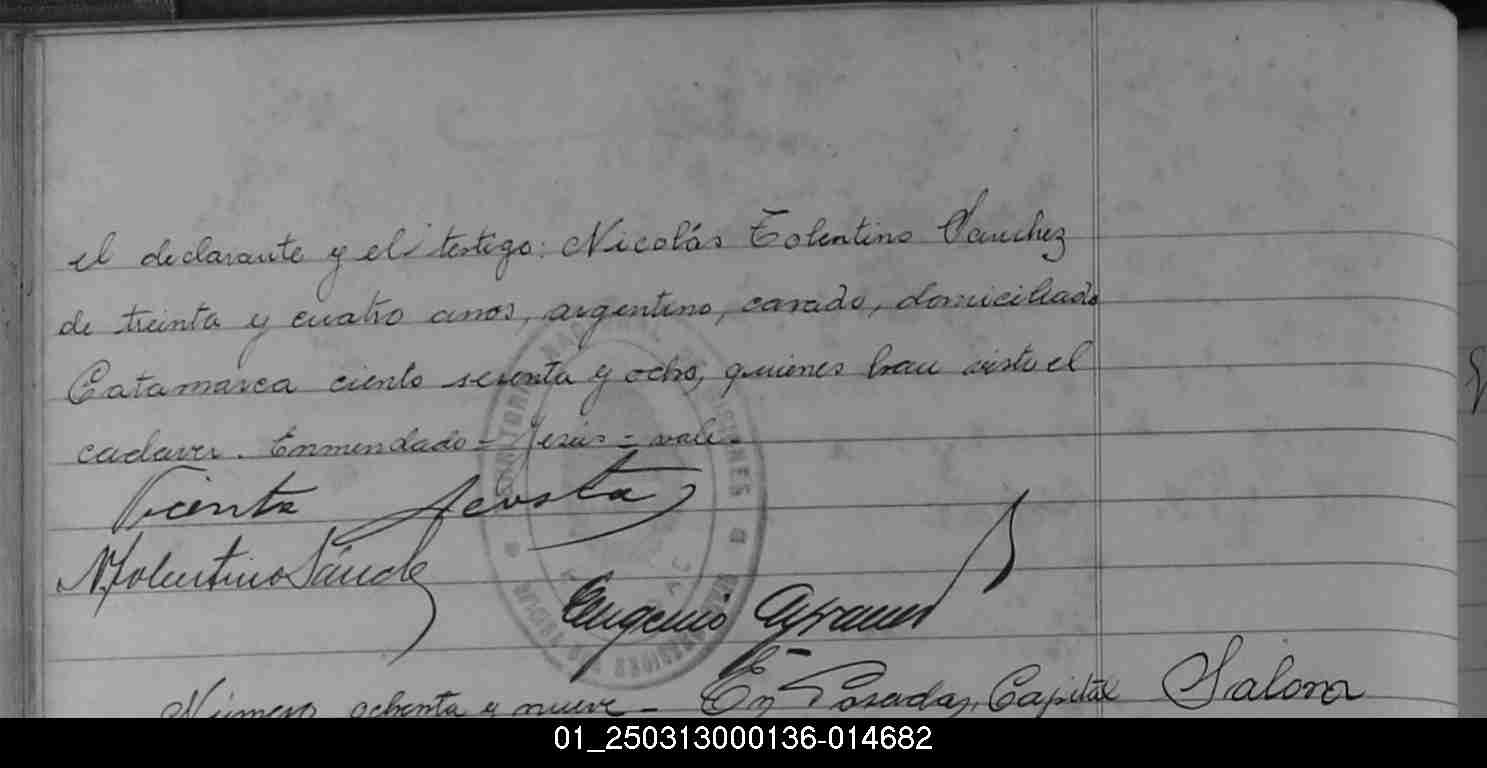 el declarante y el testigo: Nicolás Tolentino Sanchez
de treinta y cuatro anos, argentino, casado, domiciliado
Catamarca ciento sesenta y ocho, quienes han visto el
cadaver. Enmendado = Jesús = vale.
Vicente Acosta
N. Tolentino Sánchez
Eugenio
Número ochenta y nueve - En Posadas, Capital
01_250313000136-014682